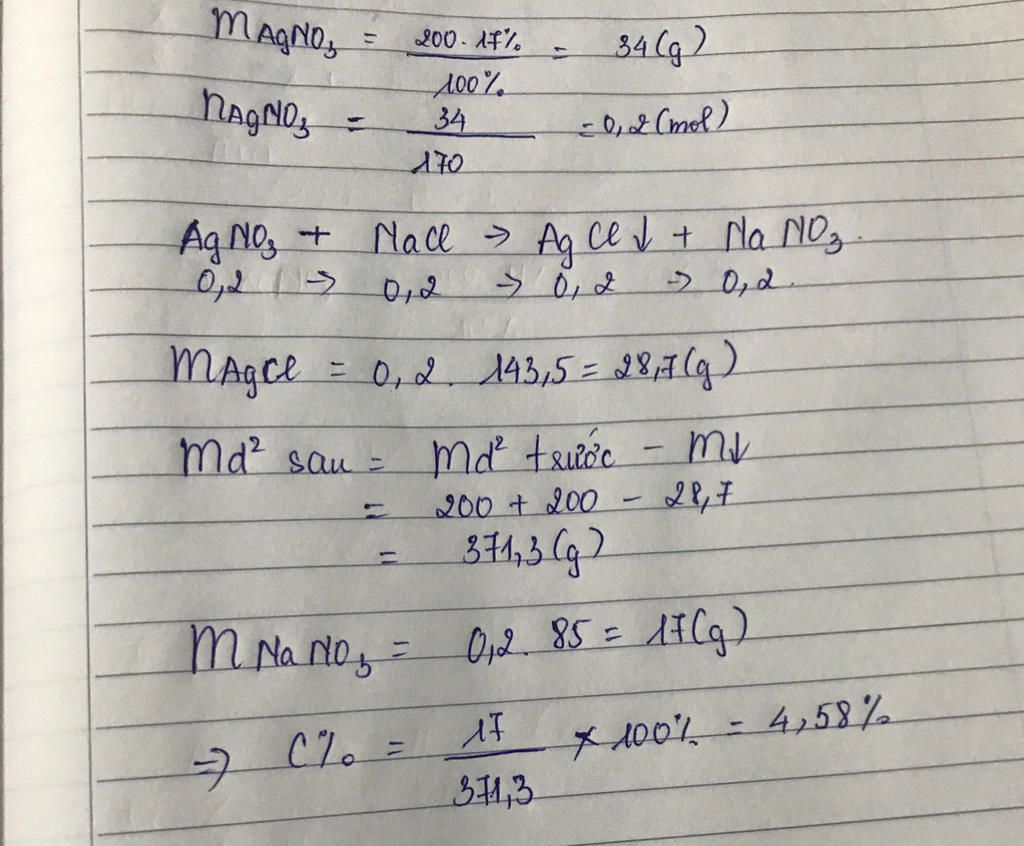 mAgNO₃ = 200 . 17% / 100% = 34 (g)
nAgNO₃ = 34 / 170 = 0,2 (mol)
AgNO₃ + NaCl → AgCl↓ + NaNO₃.
0,2 → 0,2 → 0,2 → 0,2.
mAgCl = 0,2 . 143,5 = 28,7 (g)
md² sau = md² trước - m↓
= 200 + 200 - 28,7
= 371,3 (g)
mNaNO₃ = 0,2 . 85 = 17 (g)
⇒ C% = 17 / 371,3 × 100% = 4,58%